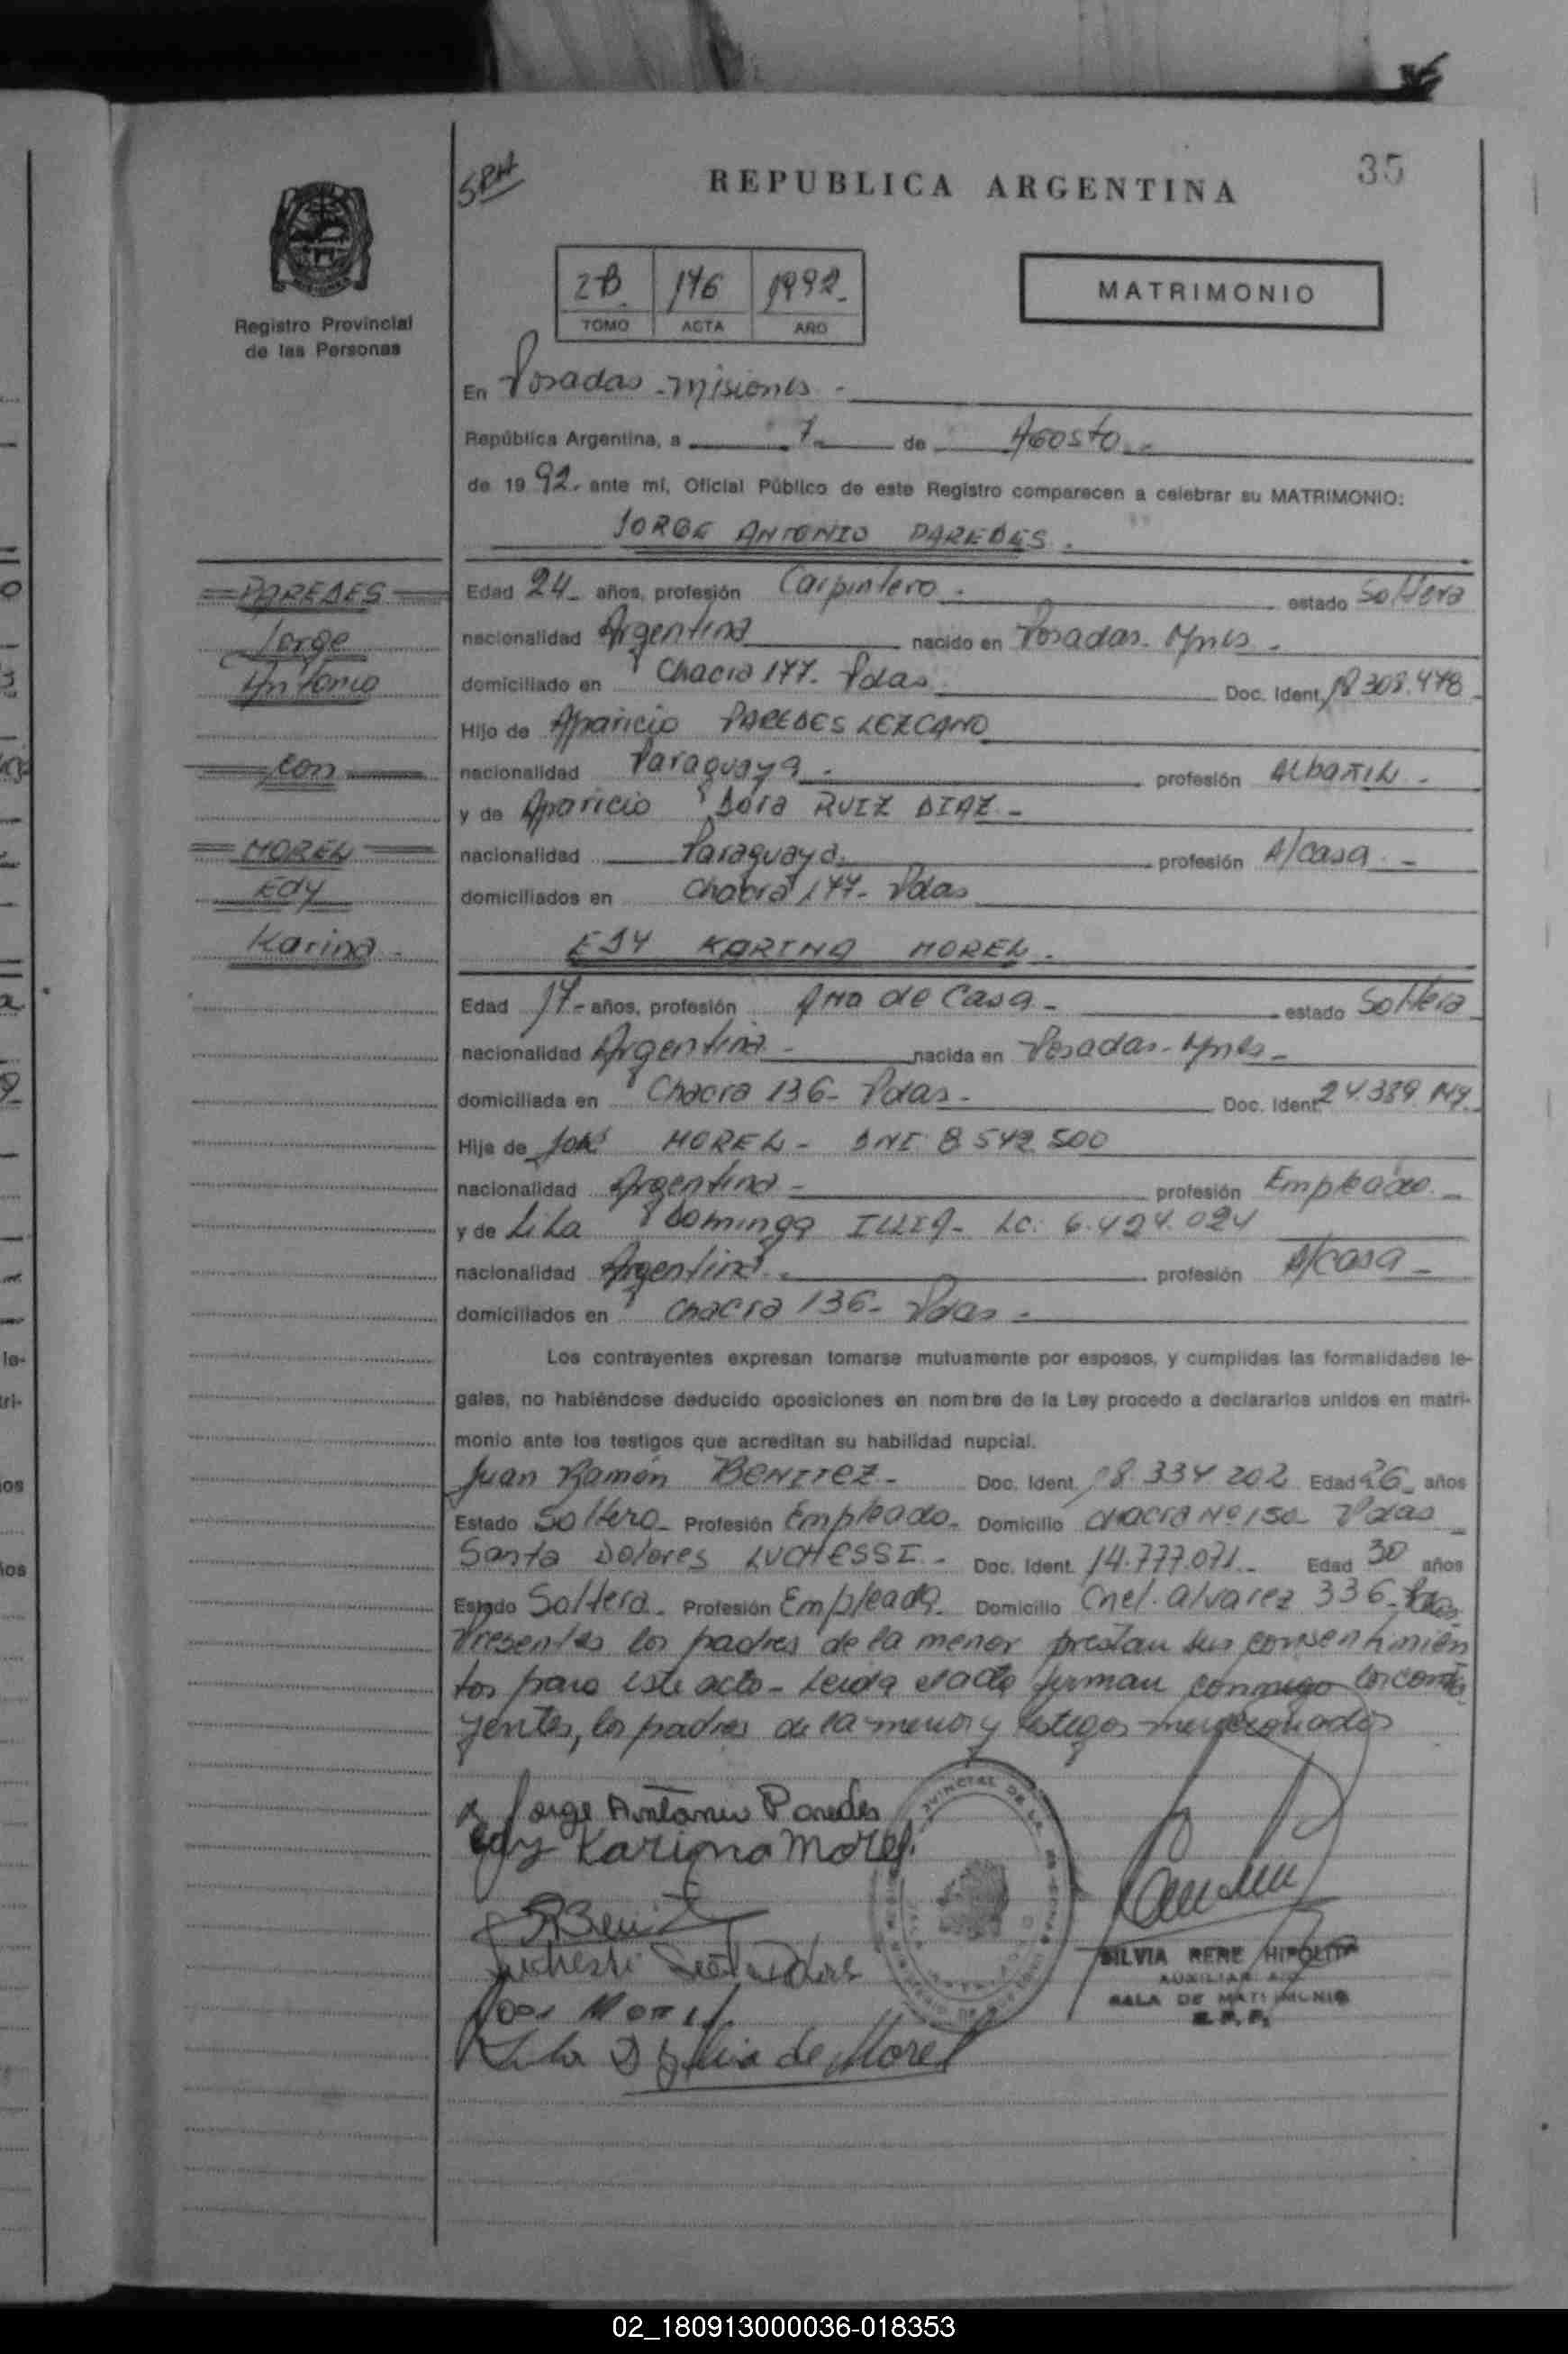 35
SRH
REPUBLICA ARGENTINA
2B 146 1992
TOMO ACTA AÑO
MATRIMONIO
Registro Provincial
de las Personas
En Posadas - Misiones -
República Argentina, a 7 de Agosto
de 1992 ante mí, Oficial Público de este Registro comparecen a celebrar su MATRIMONIO:
JORGE ANTONIO PAREDES.
PAREDES
Jorge
Antonio
con
MOREL
Edy
Karina
Edad 24 años, profesión Carpintero estado Soltero
nacionalidad Argentina nacido en Posadas - Mnes -
domiciliado en Chacra 177 - Pdas Doc. Ident. 18.308.478
Hijo de Aparicio PAREDES LEZCANO
nacionalidad Paraguaya - profesión Albañil -
y de Aparicio Dora RUIZ DIAZ -
nacionalidad Paraguaya profesión A/casa -
domiciliados en Chacra 177 - Pdas
EDY KARINA MOREL.
Edad 17 - años, profesión Ama de Casa - estado Soltera
nacionalidad Argentina - nacida en Posadas - Mnes -
domiciliada en Chacra 136 - Pdas - Doc. Ident. 24.389.149
Hija de José MOREL - DNI 8.542.500
nacionalidad Argentina - profesión Empleado -
y de Lila Dominga ILLIA - LC. 6.424.024
nacionalidad Argentina - profesión A/casa -
domiciliados en Chacra 136 - Pdas -
Los contrayentes expresan tomarse mutuamente por esposos, y cumplidas las formalidades le-
gales, no habiéndose deducido oposiciones en nombre de la Ley procedo a declararlos unidos en matri-
monio ante los testigos que acreditan su habilidad nupcial.
Juan Ramón BENITEZ - Doc. Ident. 18.334.202 Edad 26 años
Estado Soltero - Profesión Empleado - Domicilio Chacra Nº 150 Pdas -
Santa Dolores LUCHESSI - Doc. Ident. 14.777.071 - Edad 30 años
Estado Soltera - Profesión Empleada - Domicilio Cnel. Alvarez 336 - Pdas
Presentes los padres de la menor prestan sus consentimien
tos para este acto - Leida el acta firman conmigo los contra
yentes, los padres de la menor y testigos mencionados
Jorge Antonio Paredes
Edy Karina Morel
Benitez
Luchessi Santa Dolores
José Morel
Lila D Illia de Morel
SILVIA RENE HIPOLITO
AUXILIAR
SALA DE MATRIMONIO
R.P.P.
02_180913000036-018353